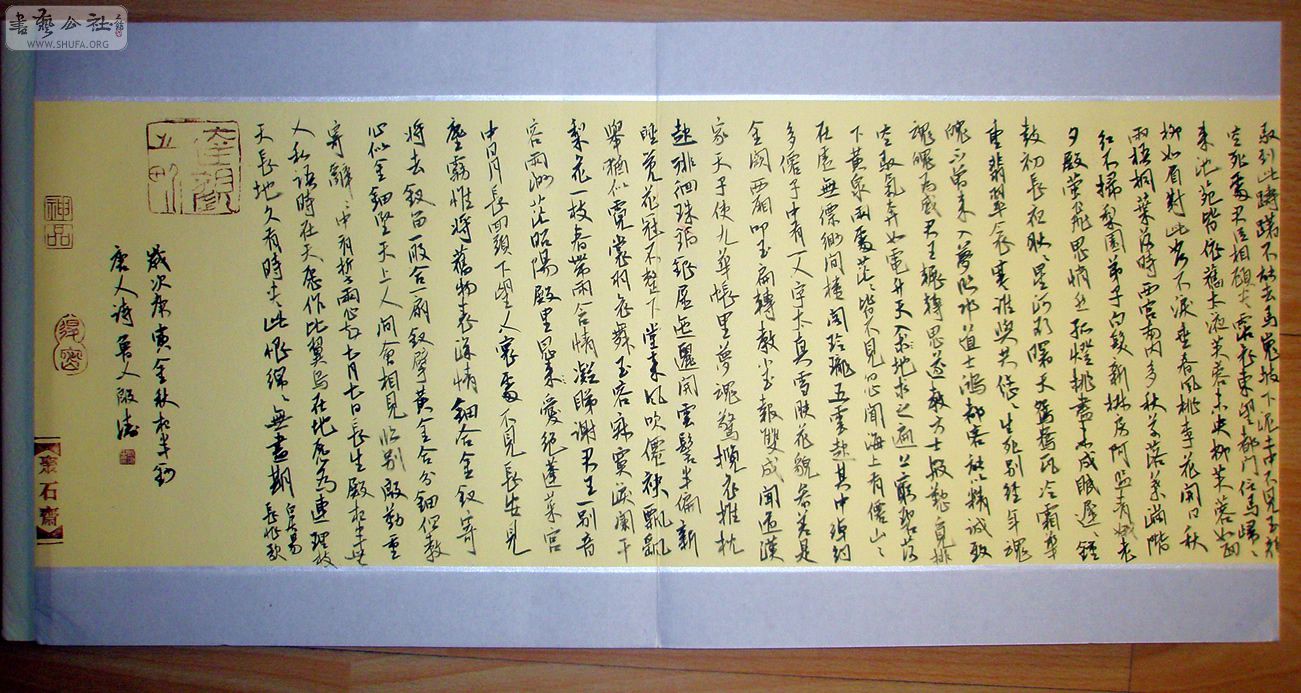 馭到此躊躇不能去馬嵬坡下泥土中不見玉顏
空死處君臣相顧盡霑衣東望都門信馬歸〻
来池苑皆依舊太液芙蓉未央柳芙蓉如面
柳如眉對此如何不淚垂春風桃李花開日秋
雨梧桐葉落時西宫南内多秋草落葉滿階
紅不掃梨園弟子白髮新椒房阿監青娥老
夕殿螢飛思悄然孤燈挑盡未成眠遲〻鐘
鼓初長夜耿〻星河欲曙天鴛鴦瓦冷霜華
重翡翠衾寒誰與共悠〻生死别經年魂
魄不曾来入夢臨邛道士鴻都客能以精誠致
魂魄為感君王輾轉思遂教方士殷勤覓排
空馭氣奔如電升天入地求之遍上窮碧落
下黄泉兩處茫〻皆不見忽聞海上有僊山〻
在虚無縹緲間樓閣玲瓏五雲起其中綽約
多僊子中有一人字太真雪膚花貌參差是
金闕西廂叩玉扃轉教小玉報雙成聞道漢
家天子使九華帳里夢魂驚攬衣推枕
起徘徊珠箔銀屏迤邐開雲髻半偏新
睡覺花冠不整下堂来風吹僊袂飄飄
舉猶似霓裳羽衣舞玉容寂寞淚闌干
梨花一枝春帶雨含情凝睇謝君王一别音
容兩渺茫昭陽殿里恩愛絕蓬萊宫
中日月長回頭下望人寰處不見長安見
塵霧惟將舊物表深情鈿合金釵寄
將去釵留一股合一扇釵擘黄金合分鈿但教
心似金鈿堅天上人間會相見臨别殷勤重
寄辭〻中有誓兩心知七月七日長生殿夜半無
人私語時在天愿作比翼鳥在地愿為連理枝
天長地久有時盡此恨綿〻無盡期
白居易
長恨歌
歲次庚寅金秋夜半鈔
唐人詩 人殷濤
神品
聚石齋
書藝公社
WWW.SHUFA.ORG